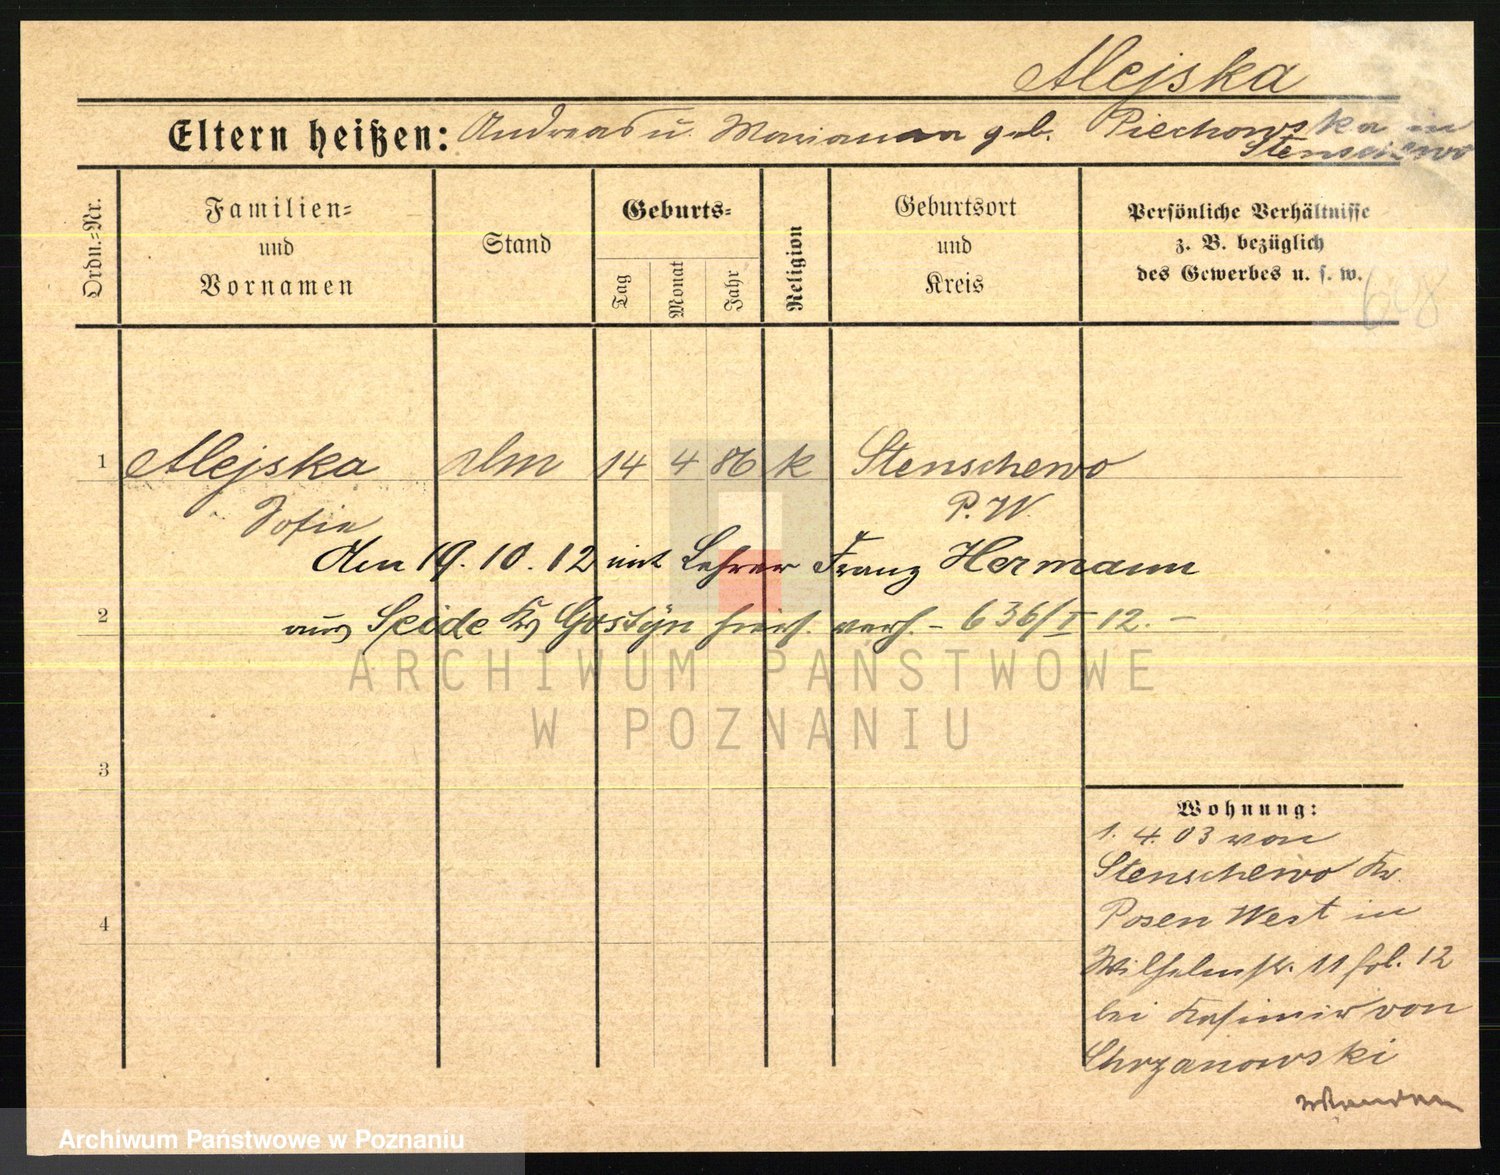 Alejska
Eltern heißen: Andreas u. Marianna geb. Piechowska in
Stenschewo
Ordn.-Nr.
Familien-
und
Vornamen
Stand
Geburts-
Tag
Monat
Jahr
Religion
Geburtsort
und
Kreis
Persönliche Verhältnisse
z. B. bezüglich
des Gewerbes u. s. w.
608
1 Alejska 14 4 86 k Stenschewo
Sofie P. W.
Am 19. 10. 12 mit Lehrer Franz Hermann
2 aus Seide Kr Gostyn hiers. verh. - 636/I 12. -
ARCHIWUM PAŃSTWOWE
W POZNANIU
3
4
Wohnung:
1. 4. 03 von
Stenschewo Kr.
Posen West in
Wilhelmstr. 11 fol. 12
bei Kasimir von
Chrzanowski
Archiwum Państwowe w Poznaniu